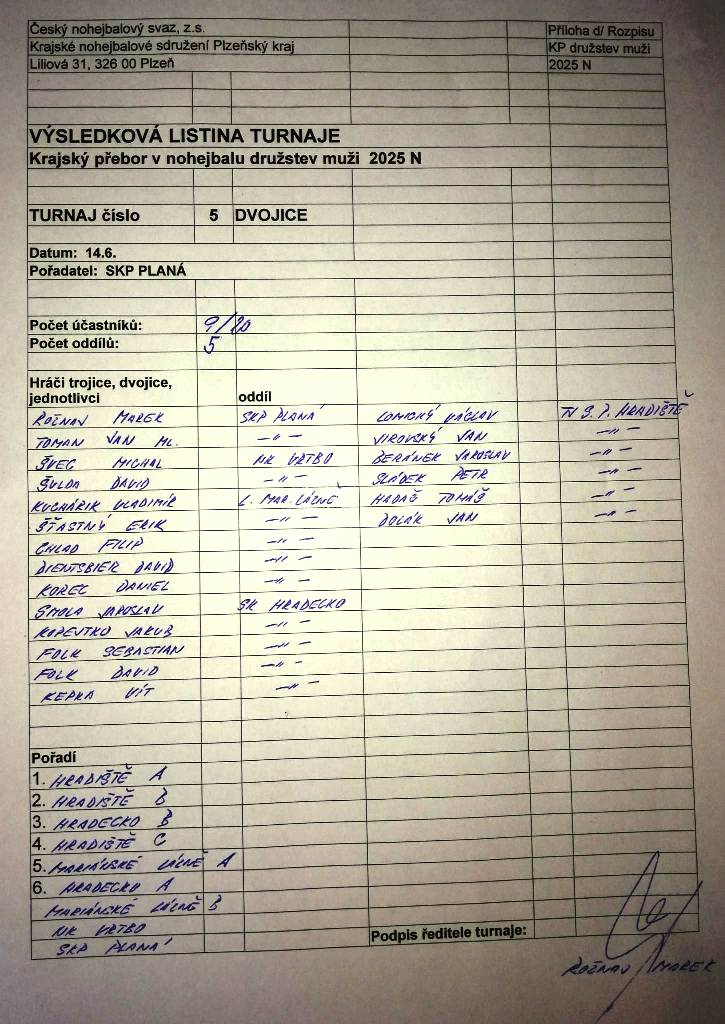 Český nohejbalový svaz, z.s. Příloha d/ Rozpisu
Krajské nohejbalové sdružení Plzeňský kraj KP družstev muži
Liliová 31, 326 00 Plzeň 2025 N
VÝSLEDKOVÁ LISTINA TURNAJE
Krajský přebor v nohejbalu družstev muži 2025 N
TURNAJ číslo 5 DVOJICE
Datum: 14.6.
Pořadatel: SKP PLANÁ
Počet účastníků: 9/20
Počet oddílů: 5
Hráči trojice, dvojice,
jednotlivci oddíl
ROŽNAV MAREK SKP PLANÁ LOMICKÝ VÁCLAV TJ S.P. HRADIŠTĚ
TOMAN JAN ML. –〃– VIROVSKÝ JAN –〃–
ŠVEC MICHAL NK VRTBO BERÁNEK JAROSLAV –〃–
ŠULDA DAVID –〃– SLÁDEK PETR –〃–
KUCHÁRIK VLADIMÍR L. MAR. LÁZNĚ HADAČ TOMÁŠ –〃–
ŠŤASTNÝ ERIK –〃– DOLÁK JAN –〃–
CHLAD FILIP –〃–
DIENTSBIER DAVID –〃–
KOREC DANIEL –〃–
SMOLA JAROSLAV SK HRADECKO
KOPEYTKO JAKUB –〃–
FOLK SEBASTIAN –〃–
FOLK DAVID –〃–
KEPKA VÍT –〃–
Pořadí
1. HRADIŠTĚ A
2. HRADIŠTĚ B
3. HRADECKO B
4. HRADIŠTĚ C
5. MARIÁNSKÉ LÁZNĚ A
6. HRADECKO A
MARIÁNSKÉ LÁZNĚ B
NK VRTBO
SKP PLANÁ
Podpis ředitele turnaje:
ROŽNAV MAREK